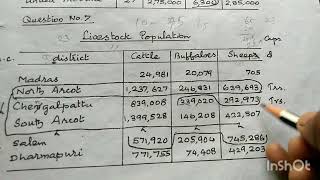 2,75,000 6,300 2,85,000
Question No.7
Livestock Population
district Cattle Buffaloes Sheeps &
Madras 24,981 20,079 705
North Arcot 1,237,627 246,831 639,693 Trs.
Chengalpattu 839,008 339,620 292,973 Trs.
South Arcot 1,399,528 146,208 422,507
Salem 571,920 205,904 745,286
Dharmapuri 771,755 74,408 429,203
InShot